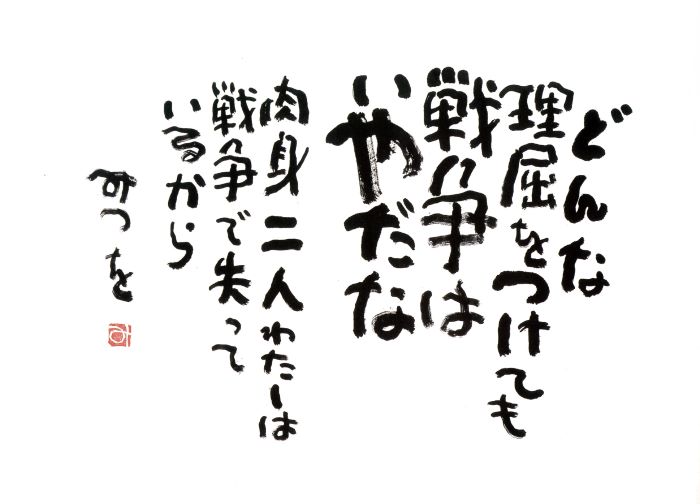 どんな
理屈をつけても
戦争は
いやだな
肉身二人わたしは
戦争で失って
いるから
みつを
み